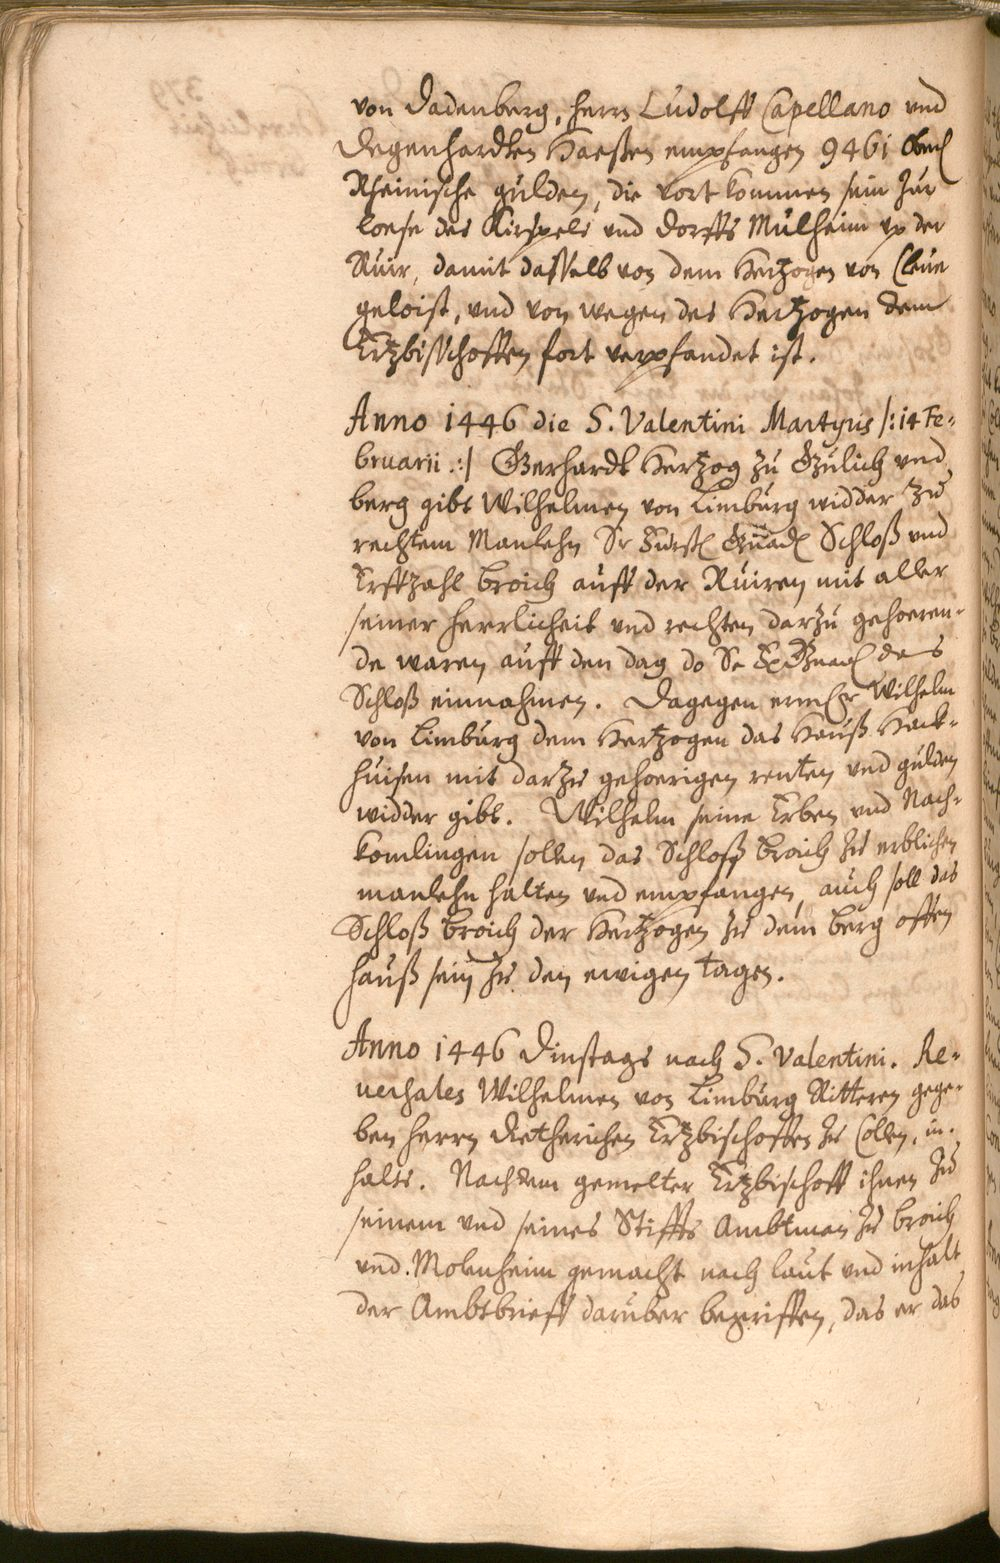 von Dadenberg, herrn Ludolff Capellano vnd
Degenhardten Haeßen empfangen 9461 Oberl
Rheinische gulden, die vort kommen sein zur
loese des Kirspels vnd Dorffs Mulheim vp der
Ruir, damit dasselb von dem Hertzogen von Cleue
geloist, vnd von wegen des Hertzogen dem
Ertzbisschoffen fort verpfandet ist.
Anno 1446 die S. Valentini Martyris /: 14 Fe-
bruarii :/ Gerhardt Hertzog zu Gulich vnd
berg gibt Wilhelmen von Limburg widder zu
rechtem Manlehn Sr Furstl Gnad Schloß vnd
Erffzahl broich auff der Ruiren mit aller
seiner herrlicheit vnd rechten darzu gehoeren-
de waren auff den dag do Se F. Gnad das
Schloß einnahmen. Dagegen Wilhelm
von Limburg dem Hertzogen das Hauß Hack-
huisen mit darzu gehoerigen renten vnd gulden
widder gibt. Wilhelm seine Erben vnd Nach-
komlingen sollen das Schloß broich zu erblichen
manlehn halten vnd empfangen, auch soll das
Schloß broich der Hertzogen zu dem berg offen
hauß sein zu den ewigen tagen.
Anno 1446 Dinstags nach S. Valentini. Re-
uersales Wilhelmen von Limburg Ritteren gege-
ben herrn Dietherichen Ertzbischoffen zu Collen, in-
halts. Nachdem gemelter Ertzbischoff ihnen zu
seinem vnd seines Stiffts Ambtman zu broich
vnd Molenheim gemacht nach laut vnd inhalt
der Ambtbrieff daruber begriffen, das er das